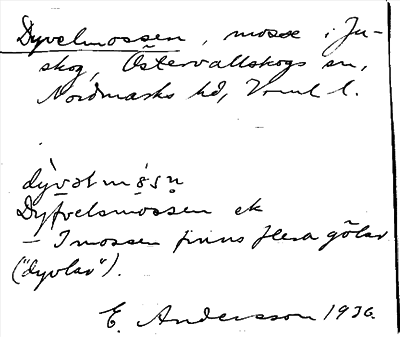 Dyvelmossen, mosse i Ju-
skog, Östervallskogs sn,
Nordmarks hd, Vrml l.
dy̆vəlmåsn
Dyfvelsmossen ek
— I mossen finns flera gölar
("dyvlar").
E. Andersson 1936.